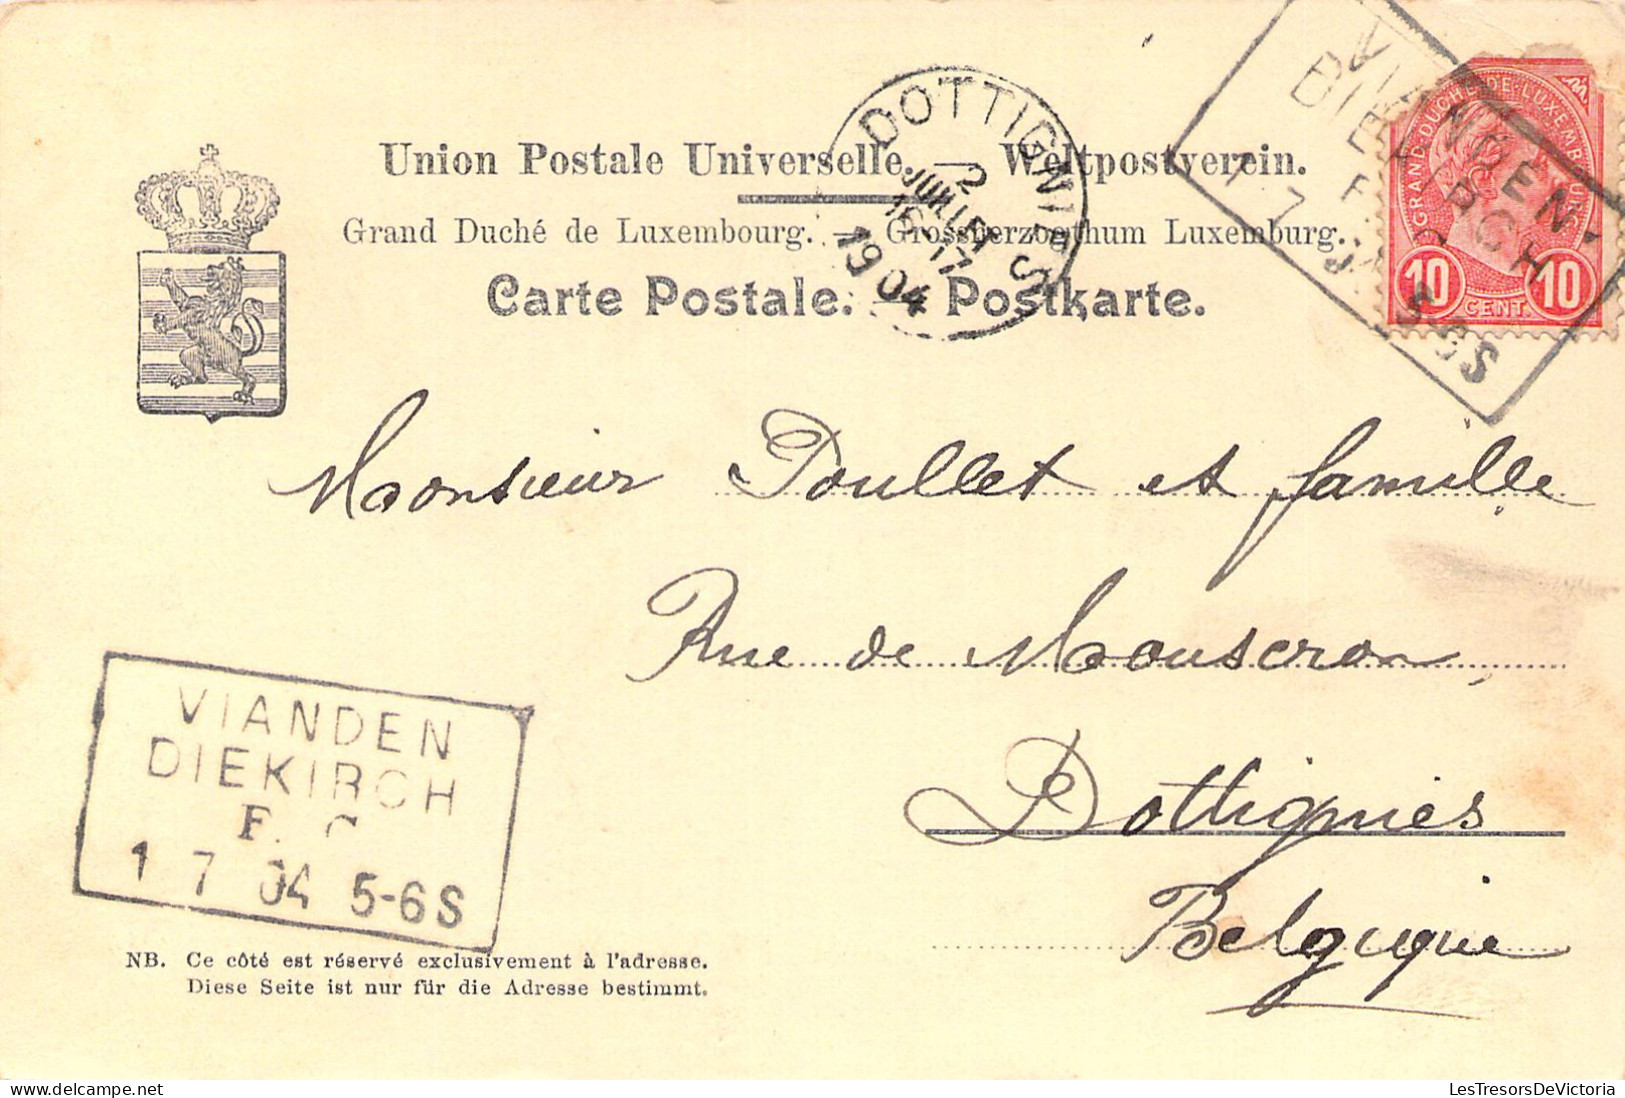 Union Postale Universelle. — Weltpostverein.
Grand Duché de Luxembourg. — Grossherzogthum Luxemburg.
Carte Postale. — Postkarte.
DOTTIGNIES
2
JUILLET
16-17
1904
VIANDEN
DIEKIRCH
F.
1 7 5-6S
GRAND-DUCHÉ DE LUXEMBOURG
10 CENT. 10
Monsieur Poullet et famille
Rue de Mouscron,
Dottignies
Belgique
VIANDEN
DIEKIRCH
F.
1 7 04 5-6S
NB. Ce côté est réservé exclusivement à l'adresse.
Diese Seite ist nur für die Adresse bestimmt.
LesTresorsDeVictoria